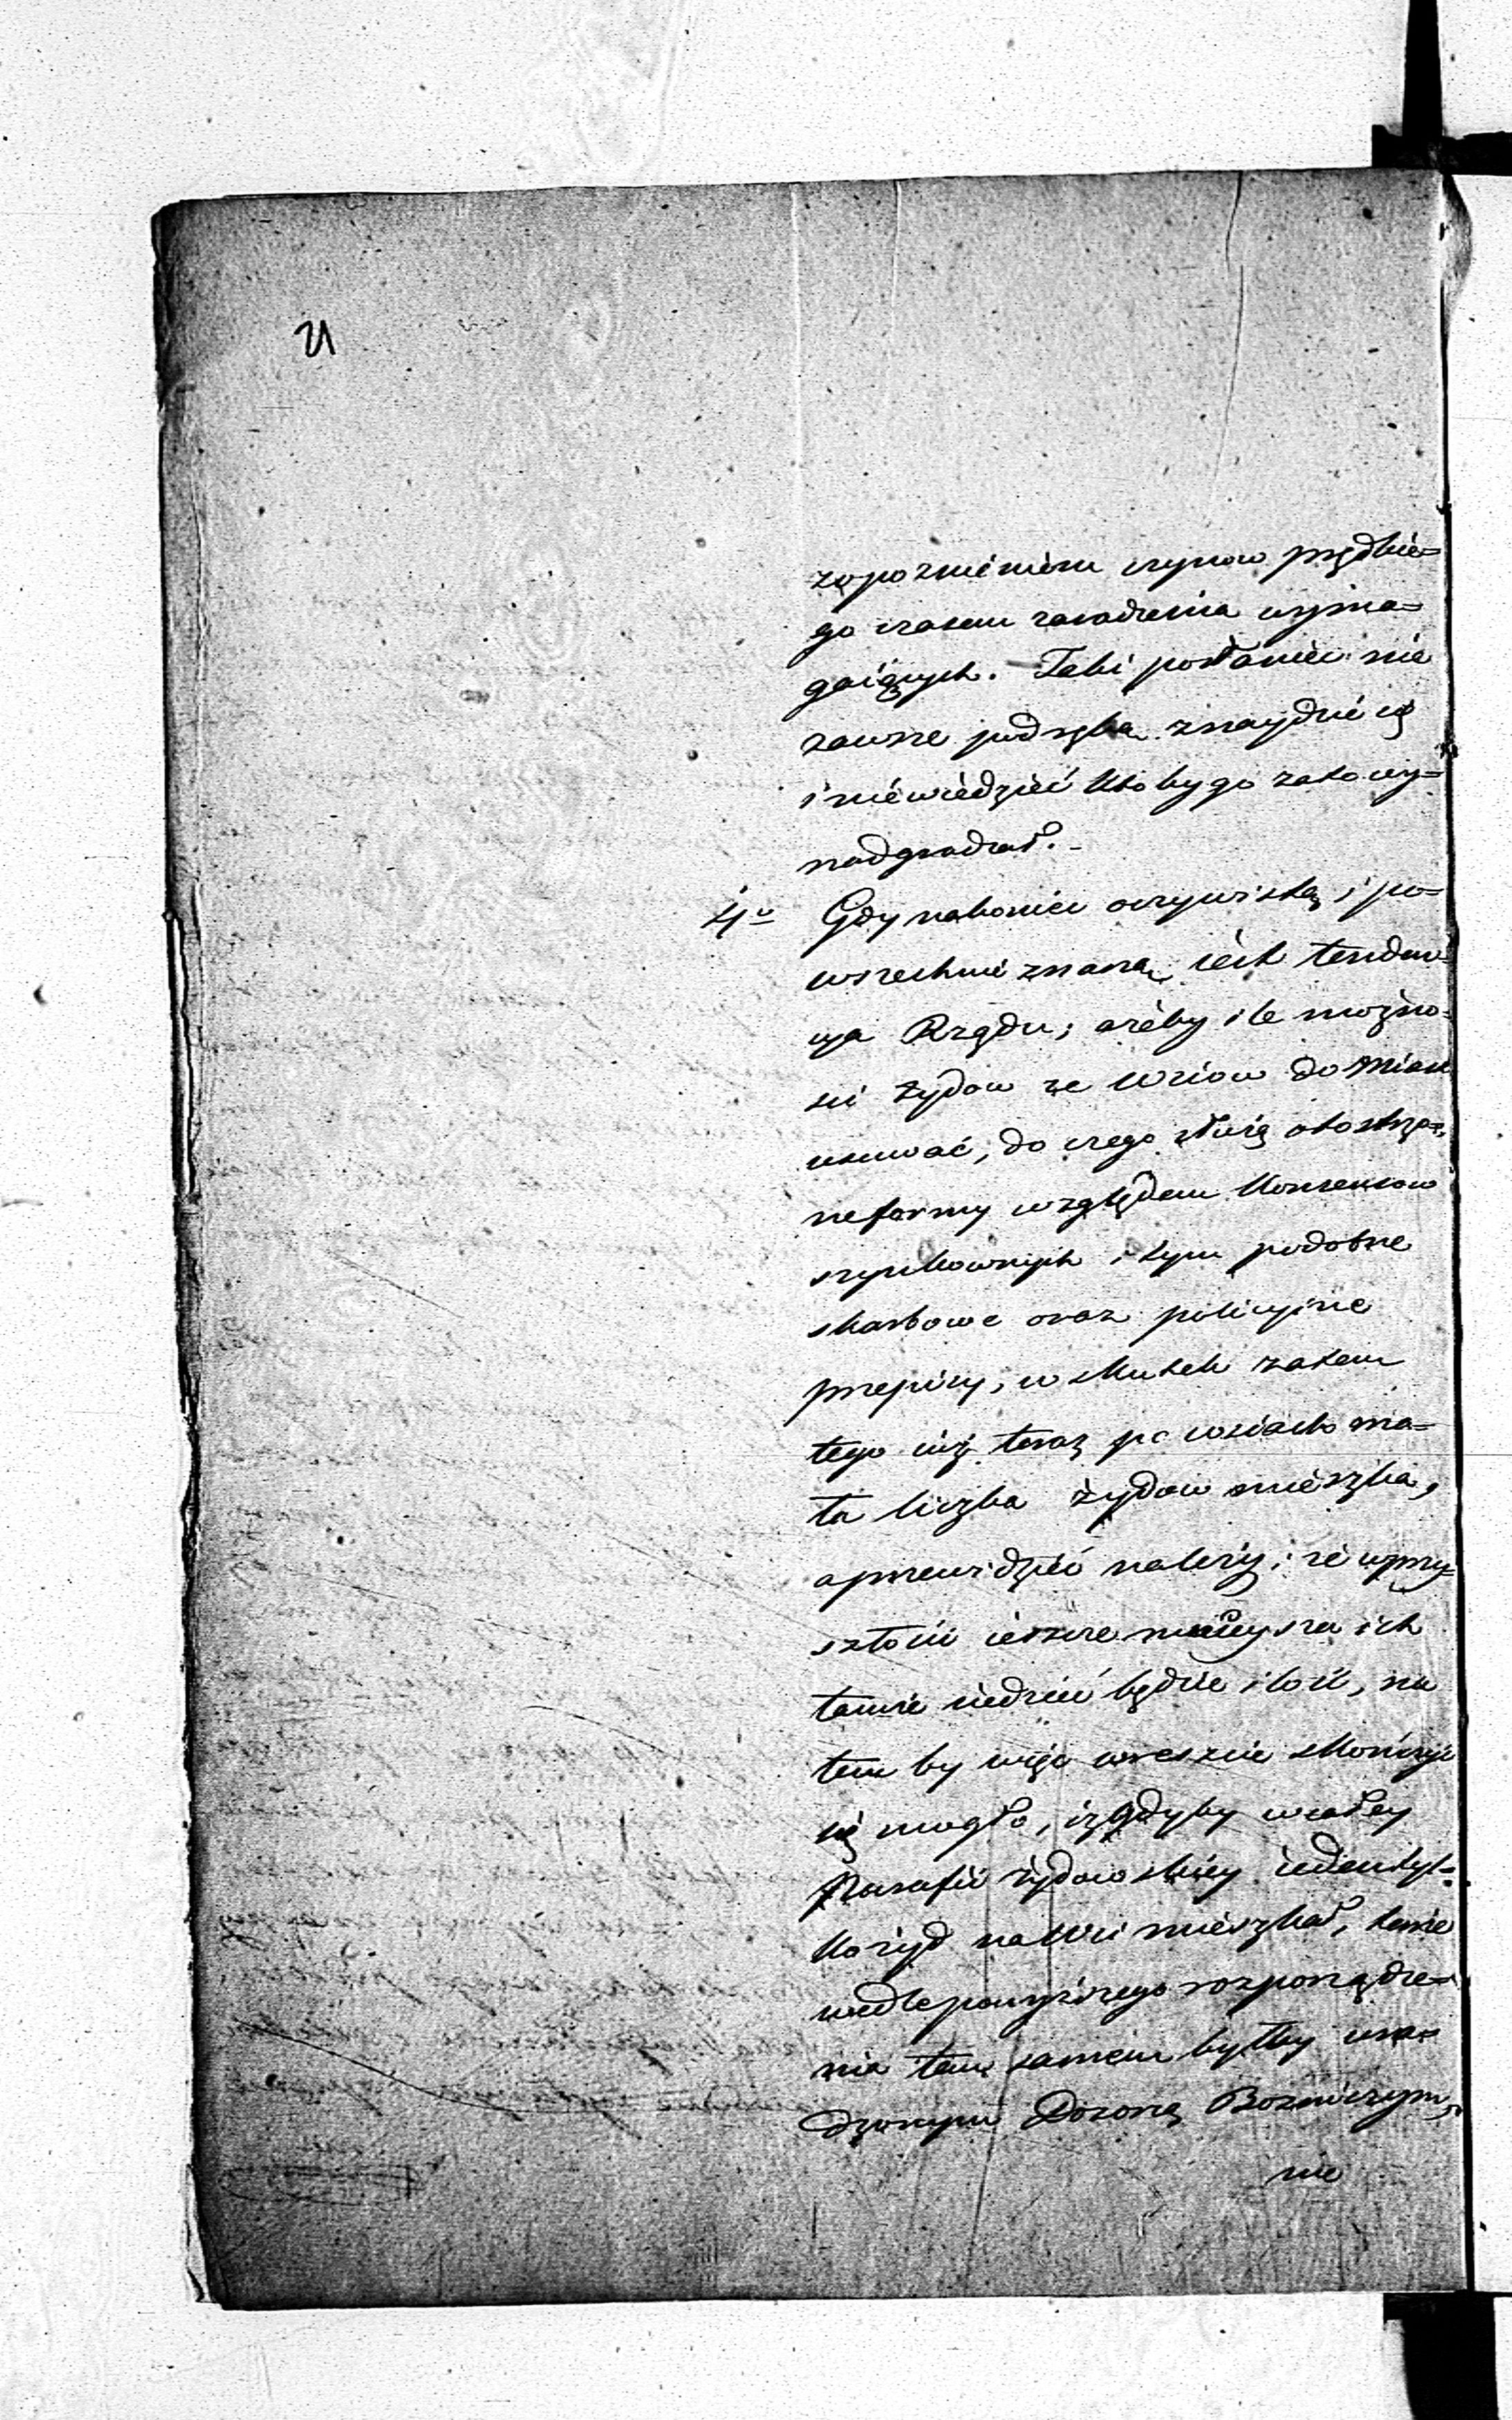 21
zapoznieniem czynow prędkie=
go czasem zaradzenia wyma=
gaiących. Taki posłaniec nie
zawsze pod ręką znayduie się
i niewiedzieć ktoby go za to wy=
nadgradzał. –
4o Gdy nakoniec oczywistą i po=
wszechnie znaną iest tenden=
cya Rządu; ażeby ile możno=
ści żydow ze Wsiow do Miast
usuwać, do czego służą obostrzo=
ne formy względem Konsensow
szynkownych i tym podobne
skarbowe oraz policyine
przepisy, w skutek zatem
tego iuż teraz po wsiach ma=
ła liczba żydow mieszka,
a przewidzieć należy; że w przy=
szłości ieszcze mnieysza ich
tamże siedzieć będzie ilość, na
tem by więc wreszcie skończyć
się mogło, iż gdyby w całey
Parafii żydowskiey ieden tyl=
ko żyd na Wsi mieszkał, tenże
wedle powyższego rozporządze=
nia tem samem byłby urzą=
dzonym Dozorcą Bozniczym,
nie